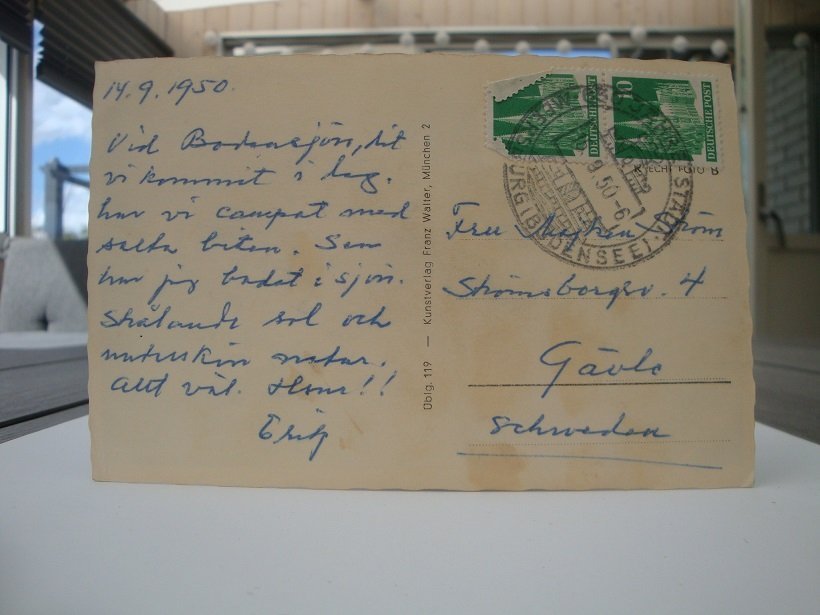 14.9.1950.
Vid Bodensjön, dit
vi kommit i dag.
har vi campat med
salta biten. Sen
har jag badat i sjön.
Strålande sol och
underskön natur.
Allt väl. Hom!!
Obtg. 119 — Kunstverlag Franz Walter, München 2
DEUTSCHE POST
10 DEUTSCHE POST
KNECHT FOTO B
9.50-6
(BODENSEE)
Fru
Strömsborgsv. 4
Gävle
Schweden